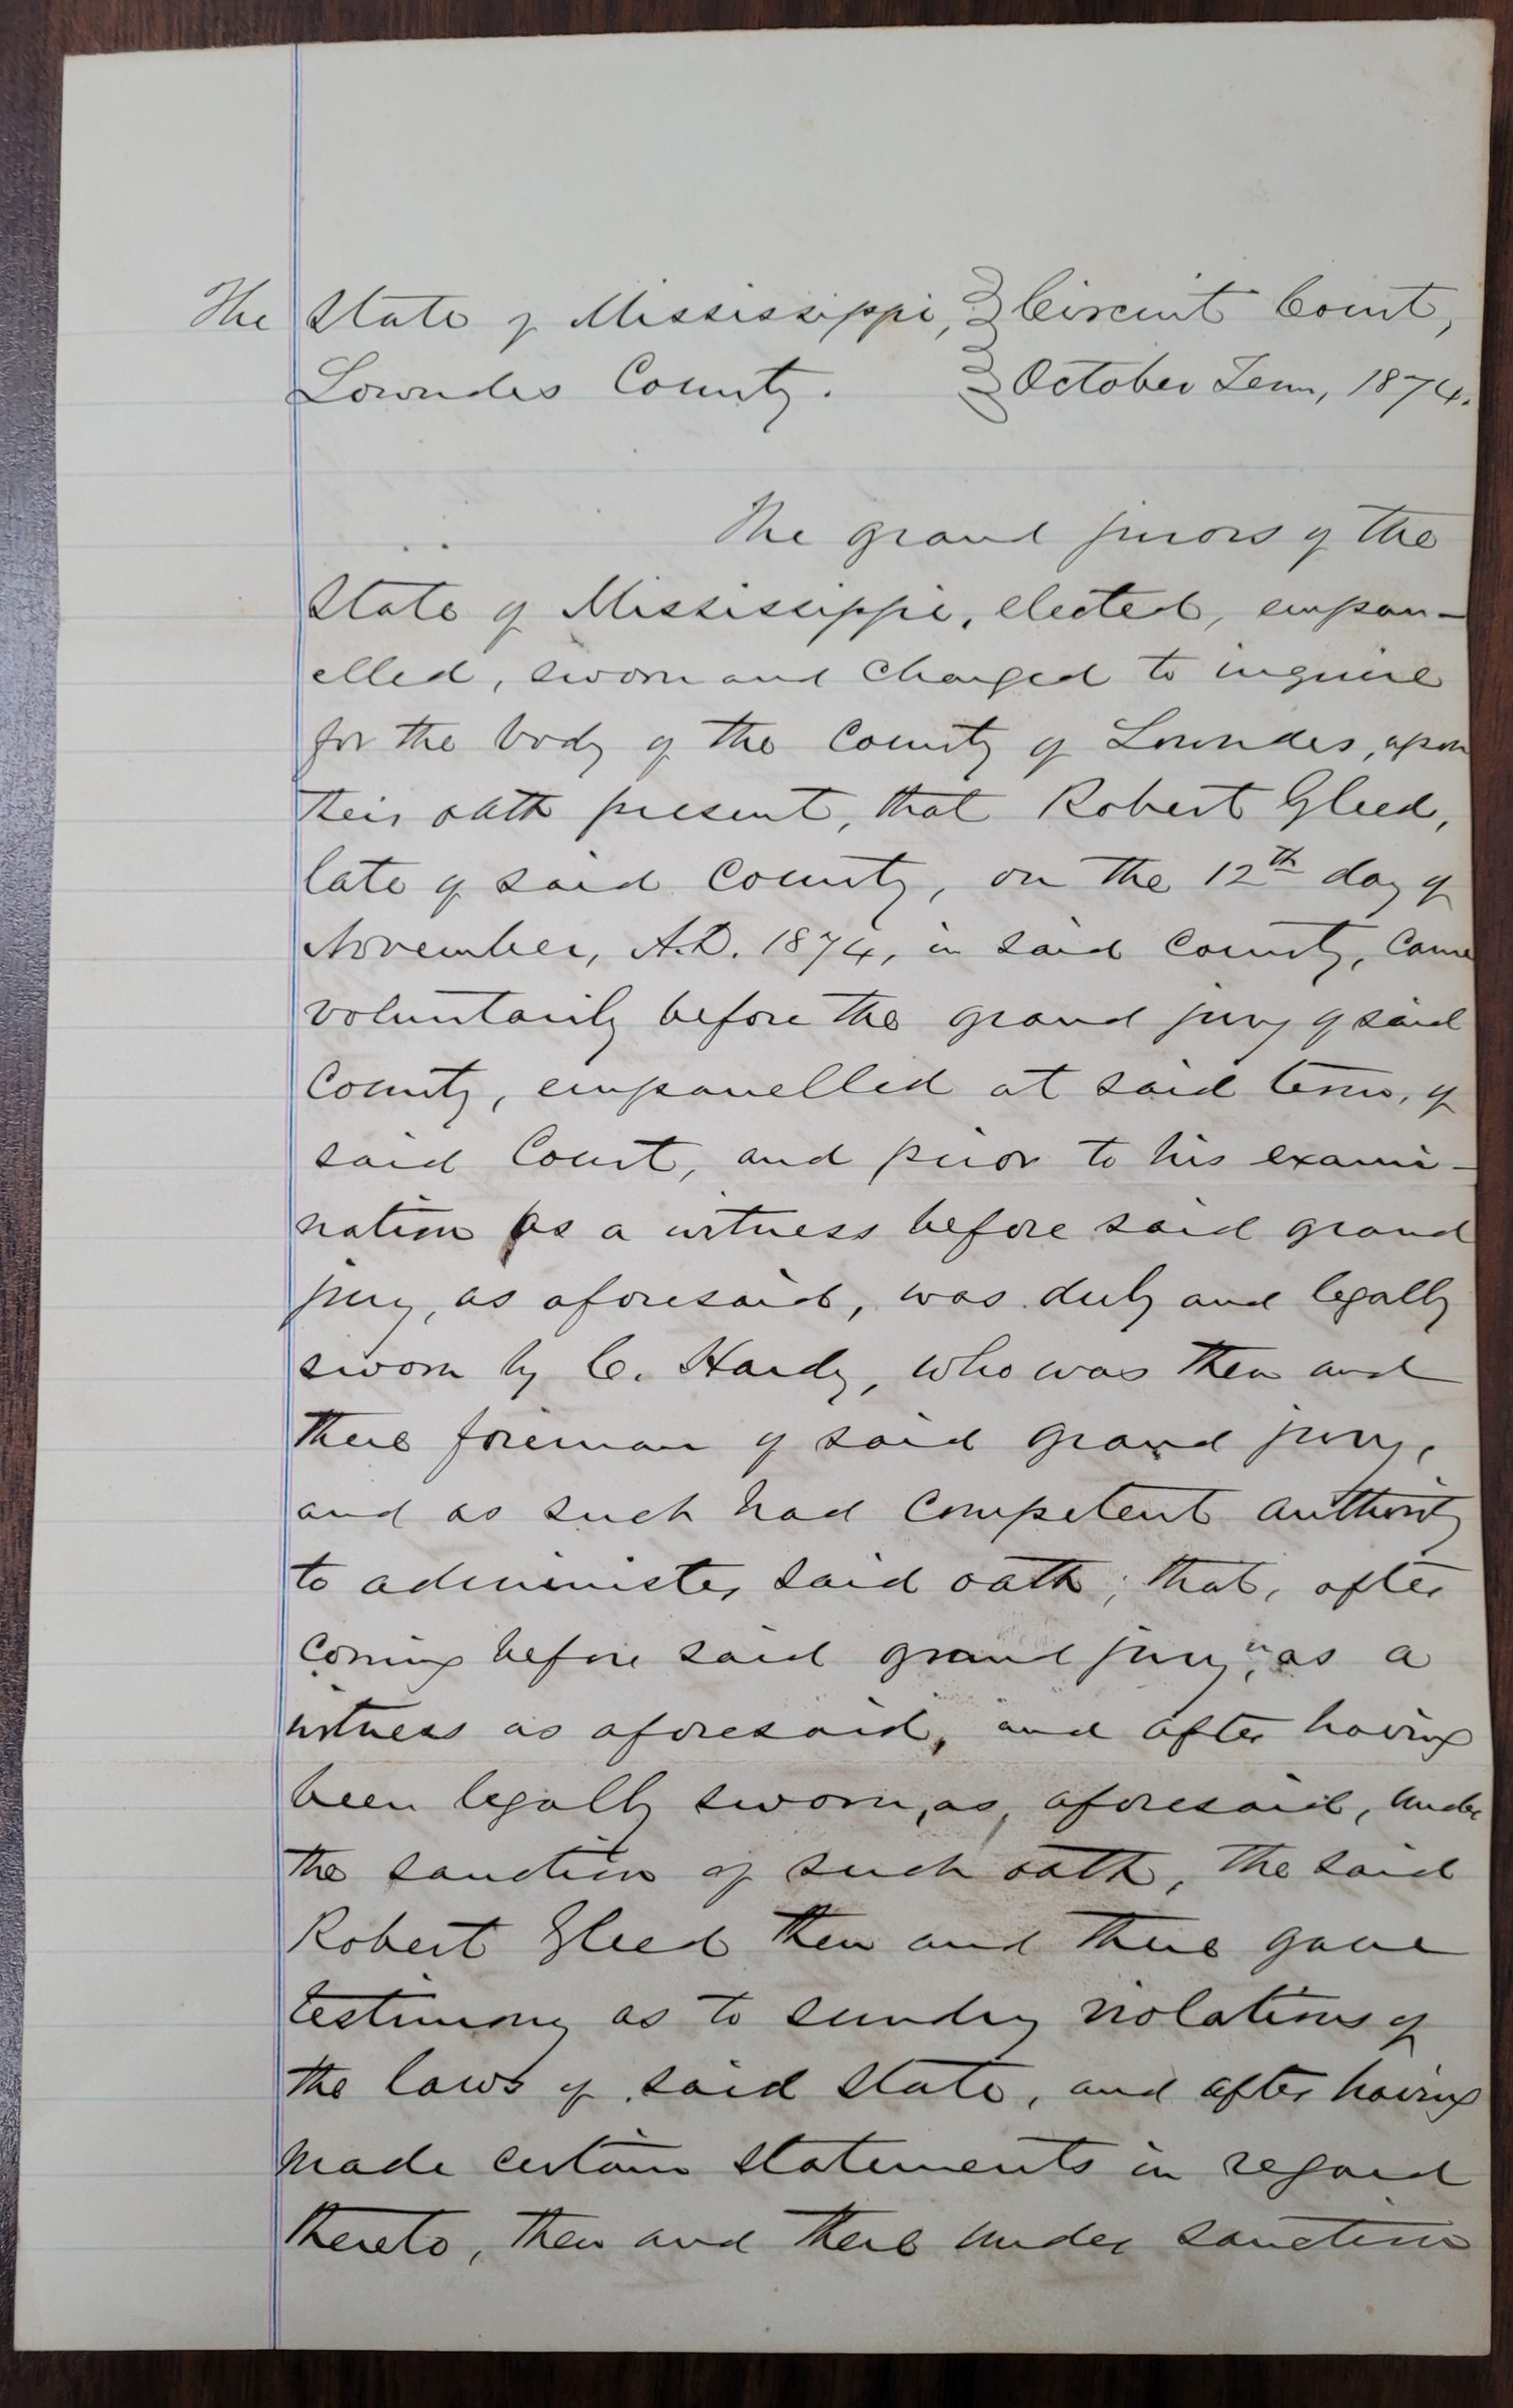 The State of Mississippi, Circuit Court,
Lowndes County. October Term, 1874.
The grand jurors of the
State of Mississippi, elected, empan-
elled, sworn and charged to inquire
for the body of the County of Lowndes, upon
their oath present, that Robert Gleed,
late of said County, on the 12th day of
November, A.D. 1874, in said County, came
voluntarily before the grand jury of said
County, empanelled at said term, of
said Court, and prior to his exami-
nation as a witness before said grand
jury, as aforesaid, was duly and legally
sworn by C. Hardy, who was then and
there foreman of said grand jury,
and as such had competent authority
to administer said oath; that, after
coming before said grand jury, as a
witness as aforesaid, and after having
been legally sworn, as, aforesaid, under
the sanction of such oath, the said
Robert Gleed then and there gave
testimony as to sundry violations of
the laws of said State, and after having
made certain statements in regard
thereto, then and there under sanction